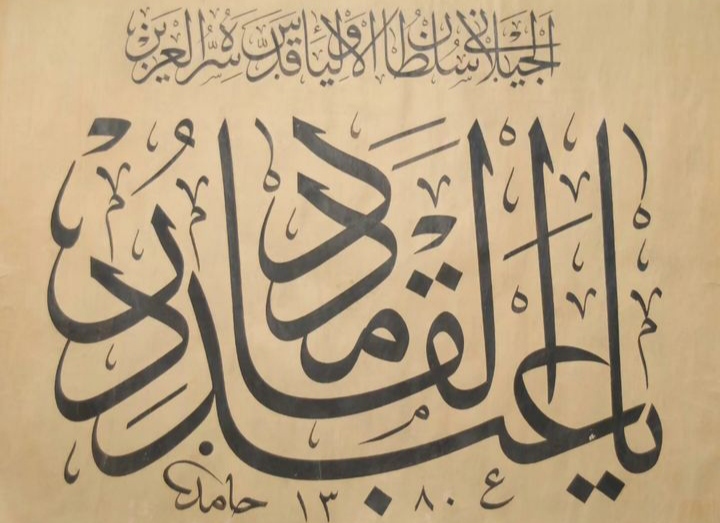 الجيلانى سلطان الاولياء قدس سره العزيز
يا عبد القادر مدد
حامد ١٣٨٠ ع